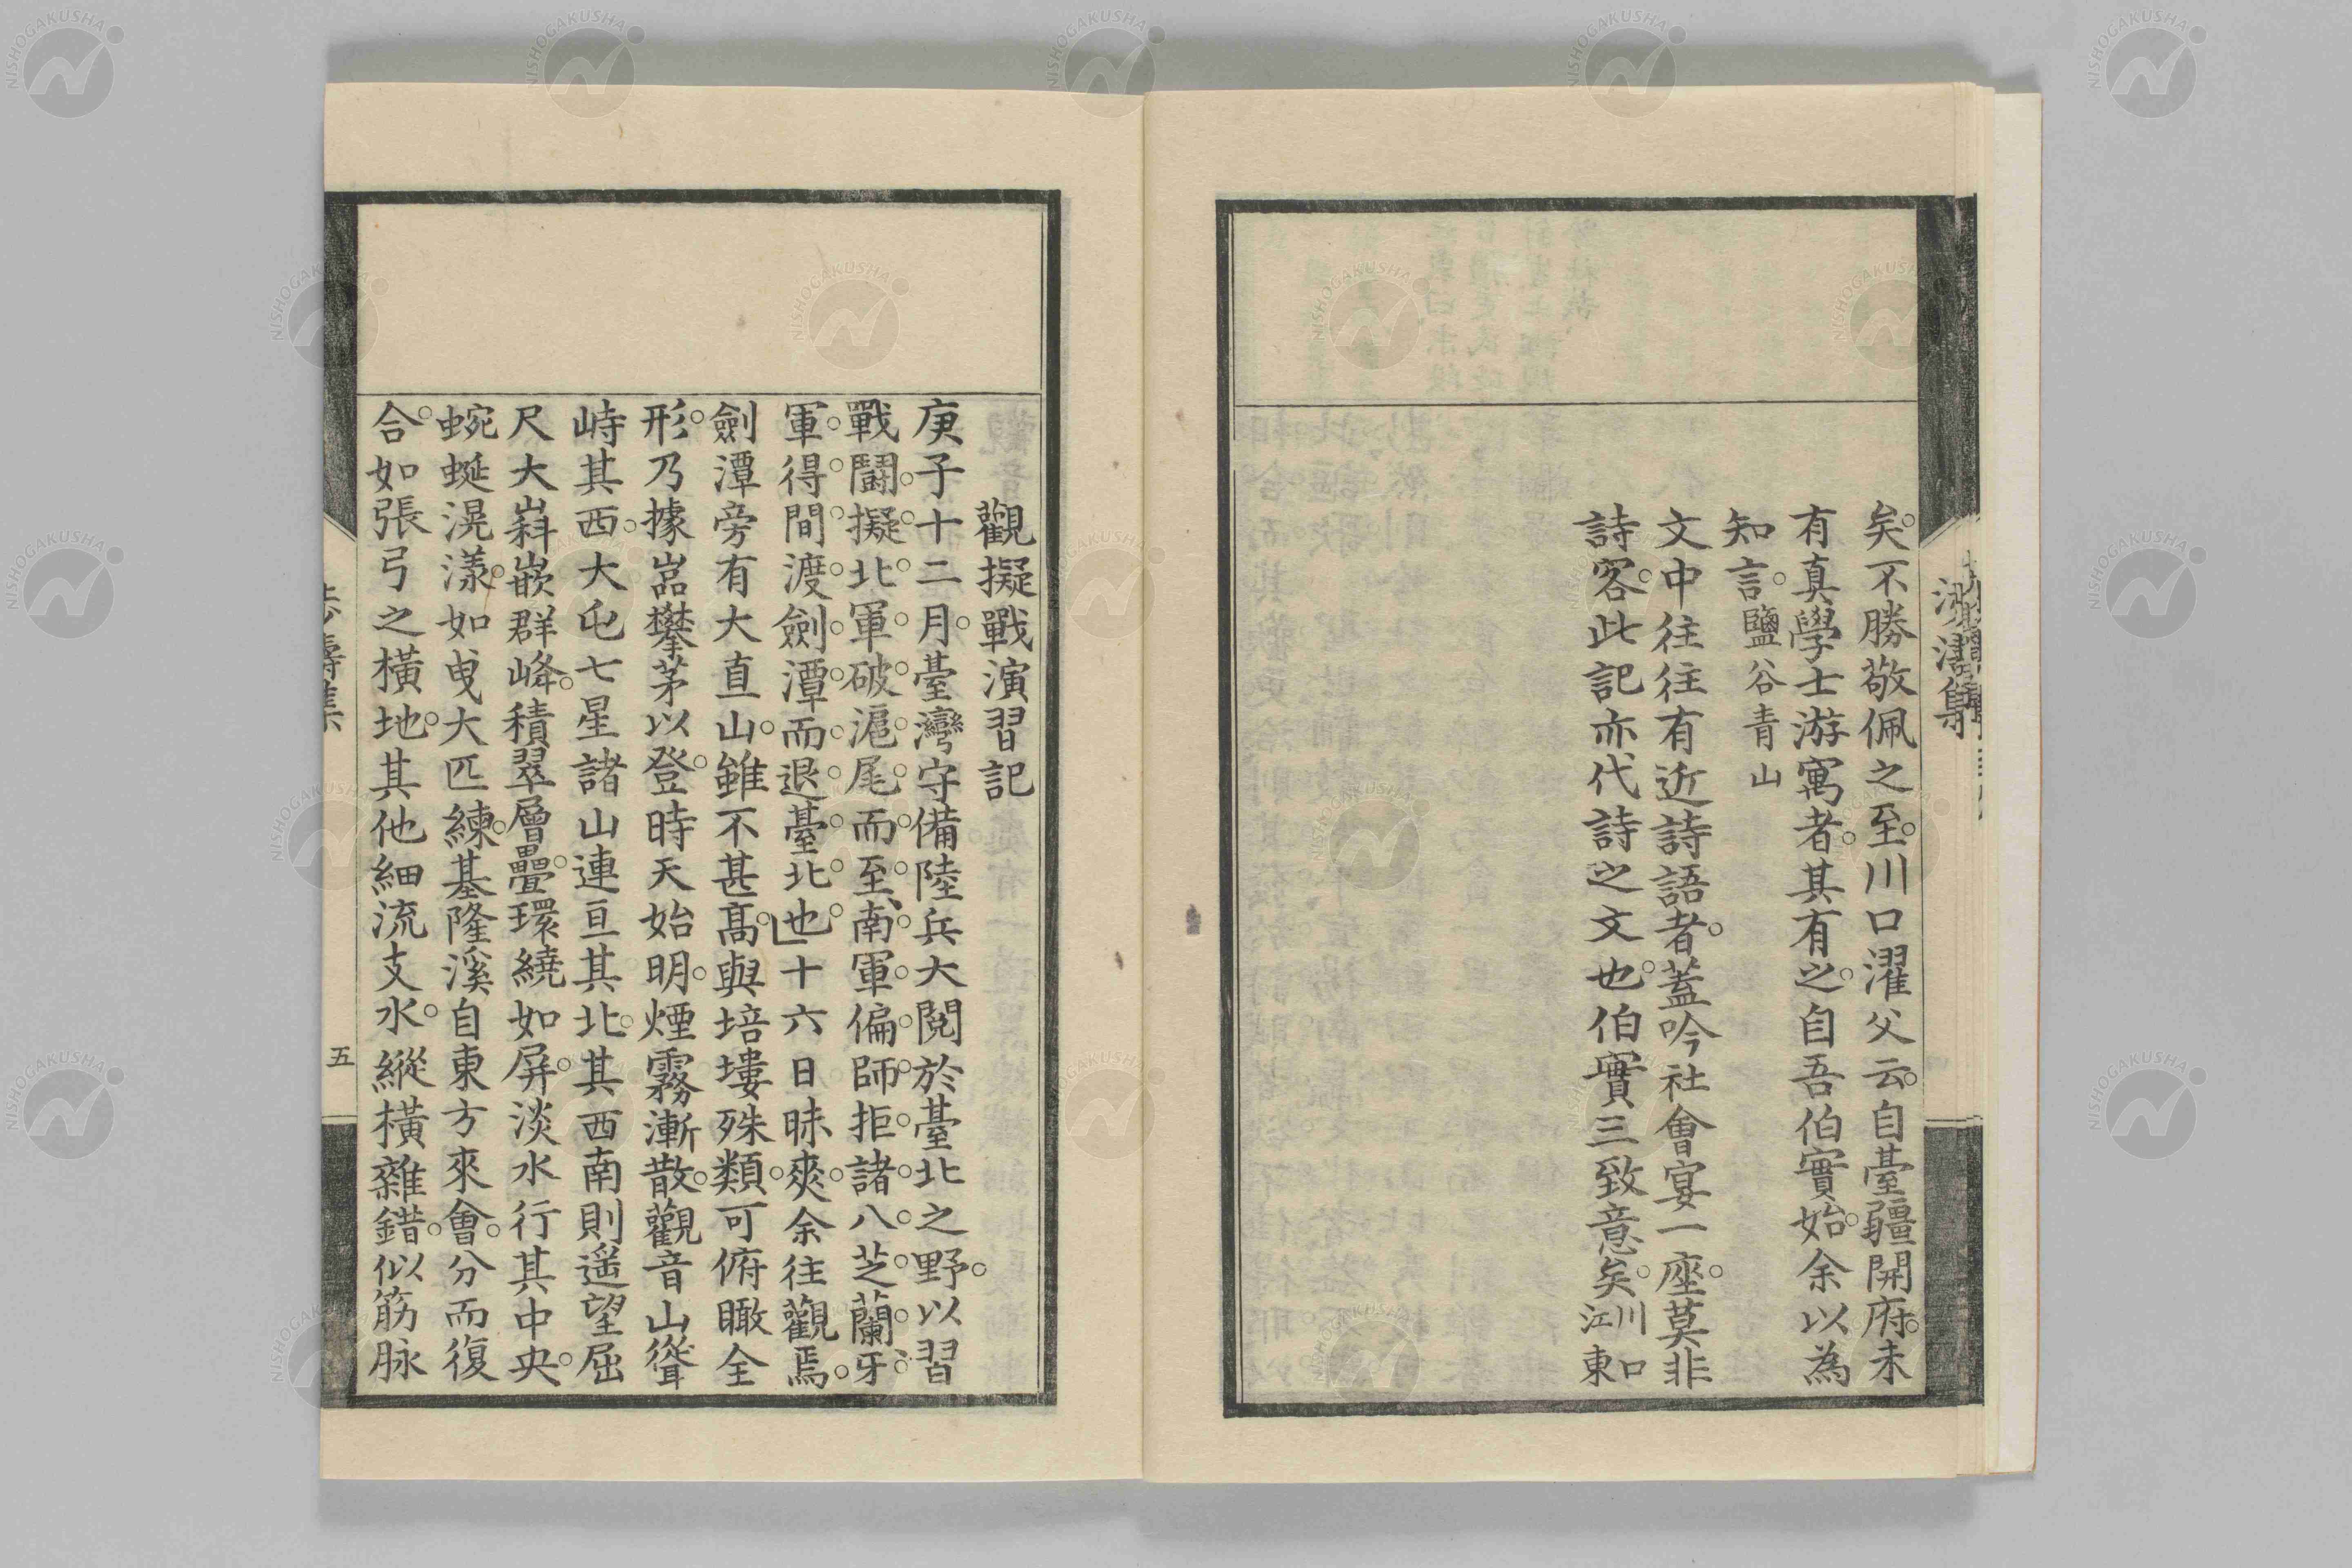 矣。不勝敬佩之至。川口濯父云。自臺疆開府。未
有真學士游寓者。其有之。自吾伯實始。余以為
知言。鹽谷青山
文中往往有近詩語者。蓋吟社會宴一座。莫非
詩客。此記亦代詩之文也。伯實三致意矣。川口江東
觀擬戰演習記
庚子十二月。臺灣守備陸兵大閱於臺北之野。以習
戰鬪。擬北軍破滬尾而至、南軍偏師拒諸八芝蘭、牙
軍得間渡劍潭而退臺北也」十六日昧爽。余往觀焉。
劍潭旁有大直山。雖不甚高。與培塿殊類。可俯瞰全
形。乃據嵓攀茅以登。時天始明。煙霧漸散。觀音山聳
峙其西。大屯七星諸山連亘其北。其西南則遥望屈
尺大嵙嵌群峰。積翠層疊。環繞如屏。淡水行其中央。
蜿蜒滉漾。如曳大匹練。基隆溪自東方來會。分而復
合。如張弓之橫地。其他細流支水。縱橫雜錯。似筋脉
五
NISHOGAKUSHA